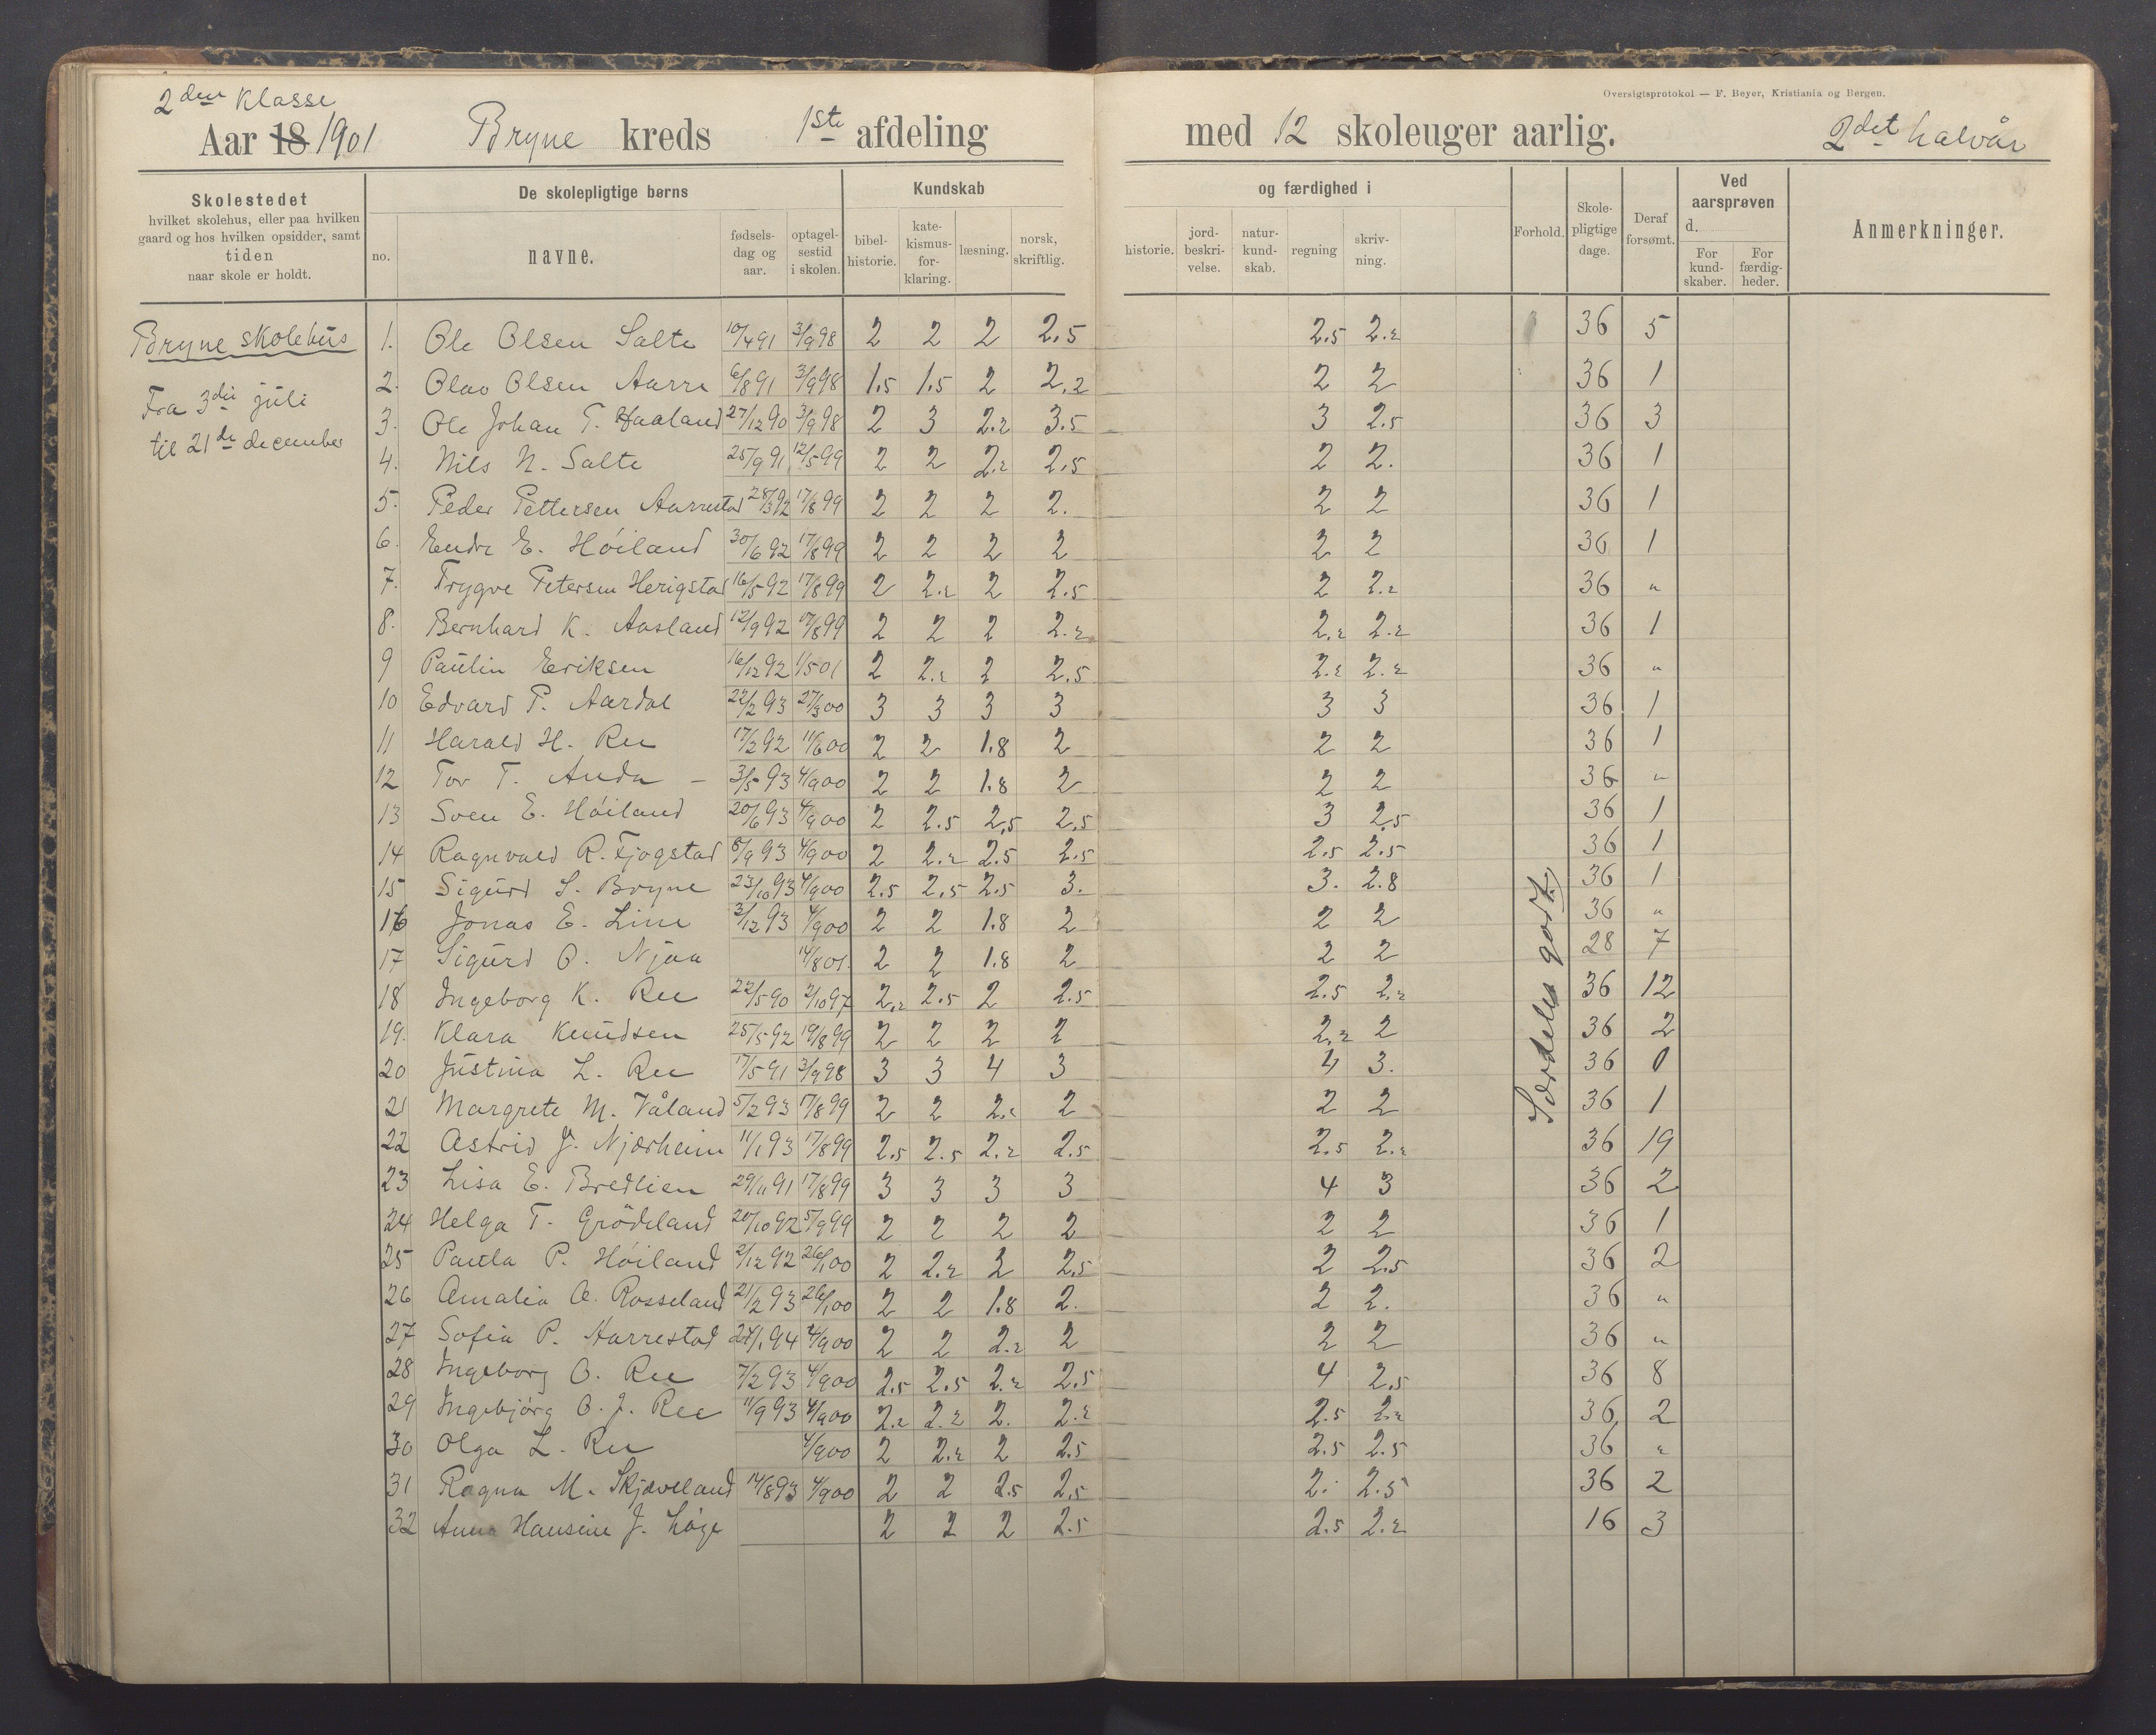 Oversigtsprotokol — F. Beyer, Kristiania og Bergen.
2den Klasse
Aar 18 1901 Bryne kreds 1ste afdeling med 12 skoleuger aarlig. 2det halvår
Skolestedet
hvilket skolehus, eller paa hvilken
gaard og hos hvilken opsidder, samt
tiden
naar skole er holdt.
De skolepligtige børns
no.
navne.
fødsels-
dag og
aar.
optagel-
sestid
i skolen.
Kundskab
bibel-
historie.
kate-
kismus-
for-
klaring.
læsning.
norsk,
skriftlig.
og færdighed i
historie.
jord-
beskri-
velse.
natur-
kund-
skab.
regning
skriv-
ning.
Forhold.
Skole-
pligtige
dage.
Deraf
forsømt.
Ved
aarsprøven
d.
For
kund-
skaber.
For
færdig-
heder.
Anmerkninger.
Bryne skolehus
Fra 3die juli
til 21de december
1. Ole Olsen Salte 10/4 91 3/9 98 2 2 2 2.5 2.5 2.2 36 5
2. Olav Olsen Aarre 6/8 91 3/9 98 1.5 1.5 2 2.2 2 2 36 1
3. Ole Johan T. Haaland 27/12 90 3/9 98 2 3 2.2 3.5 3 2.5 36 3
4. Nils N. Salte 25/9 91 12/5 99 2 2 2.2 2.5 2 2. 36 1
5. Peder Pettersen Aarrestad 28/3 92 17/8 99 2 2 2 2. 2 2 36 1
6. Endre E. Höiland 30/6 92 17/8 99 2 2 2 2 2 2 36 1
7. Trygve Petersen Herigstad 16/5 92 17/8 99 2 2.2 2 2.5 2 2.2 36 "
8. Bernhard K. Aasland 12/9 92 17/8 99 2 2 2 2.2 2.2 2.2 36 1
9 Paulin Eeriksen 16/12 92 1/5 01 2 2.2 2 2.5 2.2 2.2 36 "
10 Edvard P. Aardal 22/2 93 27/3 00 3 3 3 3 3 3 36 1
11 Harald H. Ree 17/2 92 11/6 00 2 2 1.8 2 2 2 36 1
12 Tor T. Anda – 3/5 93 4/9 00 2 2 1.8 2 2 2 36 "
13 Sven E. Höiland 20/6 93 4/9 00 2 2.5 2.5 2.5 3 2.5 36 1
14 Ragnvald R. Fjogstad 8/9 93 4/9 00 2 2.2 2.5 2.5 2.5 2.5 36 1
15 Sigurd S. Bryne 23/10 93 4/9 00 2.5 2.5 2.5 3. 3. 2.8 36 1
16 Jonas E. Line 3/12 93 4/9 00 2 2 1.8 2 2 2 36 "
17 Sigurd O. Njaa 14/8 01. 2 2 1.8 2 2 2 28 7
18 Ingeborg K. Ree 22/5 90 2/10 97 2.2 2.5 2 2.5 2.5 2.2 36 12
19. Klara Knudsen 25/5 92 19/8 99 2 2 2 2 2.2 2 36 2
20 Justina L. Ree 17/5 91 3/9 98 3 3 4 3 4 3. 36 0
21 Margrete M. Våland 5/2 93 17/8 99 2 2 2.2 2 2 2 36 1
22 Astrid J. Njærheim 11/1 93 17/8 99 2.5 2.5 2.2 2.5 2.5 2.2 36 19
23 Lisa E. Bredlien 29/11 91 17/8 99 3 3 3 3 4 3 36 2
24 Helga T. Grödeland 20/10 92 5/9 99 2 2 2 2 2 2 36 1
25 Paula P. Höiland 2/12 92 26/1 00 2 2.2 2 2.5 2 2.5 36 2
26 Amalia A. Rosseland 21/2 93 26/1 00 2 2 1.8 2. 2 2. 36 "
27 Sofia P. Aarrestad 24/1 94 4/9 00 2 2 2.2 2 2 2 36 "
28 Ingeborg O. Ree 7/2 93 4/9 00 2.5 2.5 2.2 2.5 4 2.5 36 8
29 Ingebjörg O. J. Ree 11/9 93 4/9 00 2.2 2.2 2. 2.2 2.5 2.2 36 2
30 Olga L. Ree 4/9 00 2 2.2 2 2.5 2.5 2.5 36 "
31 Ragna M. Skjæveland 14/8 93 4/9 00 2 2 2.5 2.5 2. 2.5 36 2
32 Anna Hansine J. Löge 2 2 2 2.5 2.5 2.2 16 3
Særdeles godt